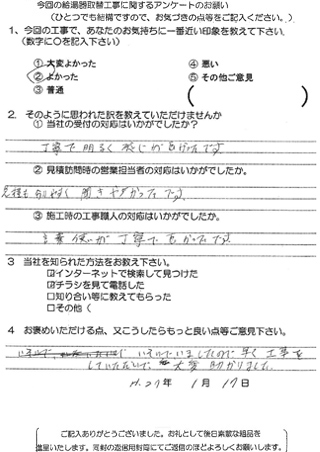 今回の給湯器取替工事に関するアンケートのお願い
(ひとつでも結構ですので、お気づきの点等をご記入ください。)
1、今回の工事で、あなたのお気持ちに一番近い印象を教えて下さい。
(数字に○を記入下さい)
① 大変よかった ④ 悪い
② よかった ⑤ その他ご意見
③ 普通 ( )
2. そのように思われた訳を教えていただけませんか
① 当社の受付の対応はいかがでしたか?
丁寧で 明るく 感じが良かったです
② 見積訪問時の営業担当者の対応はいかがでしたか。
聞きやすかったです
③ 施工時の工事職人の対応はいかがでしたか。
言葉使いが 丁寧で 良かったです
3 当社を知られた方法をお教え下さい。
☑インターネットで検索して見つけた
☑チラシを見て電話した
□知り合い等に教えてもらった
□その他(
4 お褒めいただける点、又こうしたらもっと良い点等ご意見下さい。
いそいでいましたので 早く 工事を
していただいて、大変 助かりました。
H.27年 1月 17日
ご記入ありがとうございました。お礼として後日素敵な粗品を
進呈いたします。同封の返信用封筒にてご返信のほどよろしくお願いします。